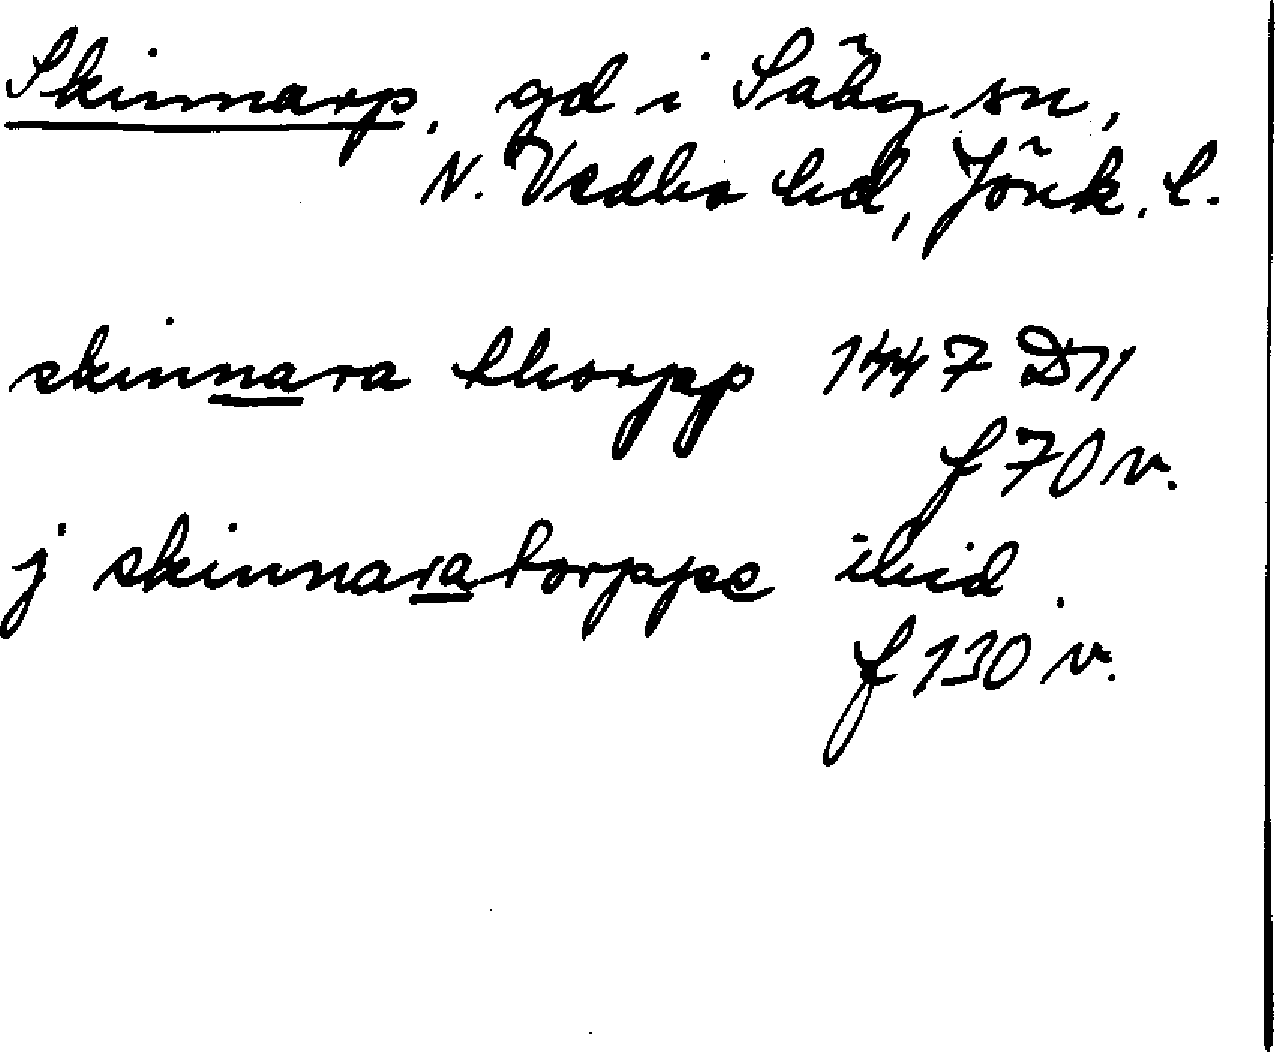 Skinnarp, gd i Säby sn,
N. Vedbo hd, Jönk. l.
skinnara thorpp 1447 D 11
f 70 v.
j skinnara torppe ibid.
f 130 v.